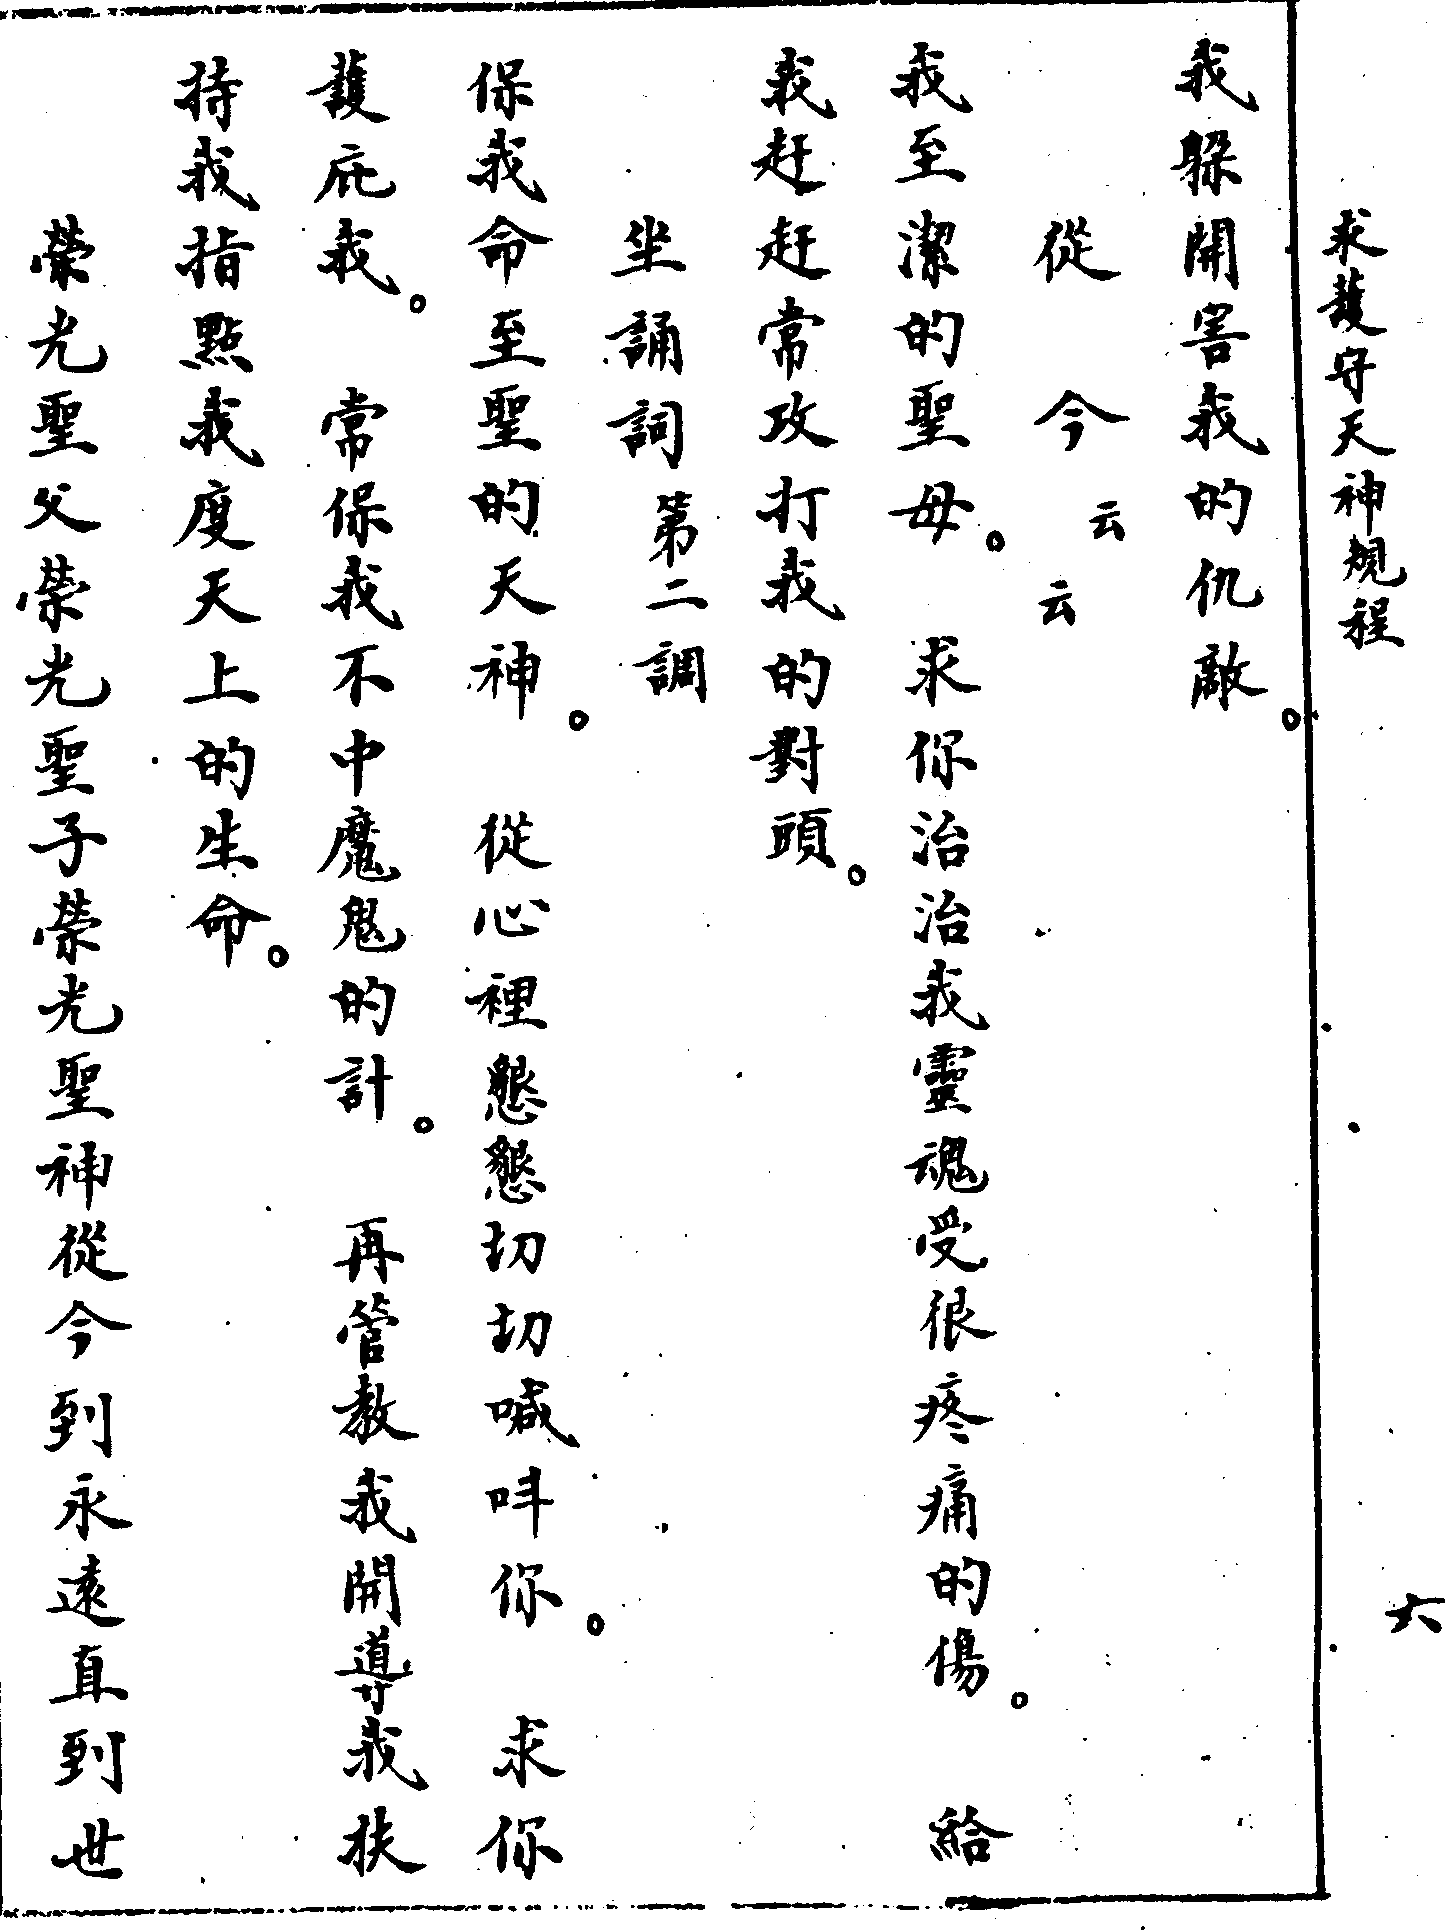 求護守天神規程
六
我躲開害我的仇敵。
從今云云
我至潔的聖母。 求你治治我靈魂受很疼痛的傷。 給
我赶赶常攻打我的對頭。
坐誦詞 第二調
保我命至聖的天神。 從心裡懇懇切切喊呌你。 求你
護庇我。 常保我不中魔鬼的計。 再管教我開導我扶
持我指點我度天上的生命。
榮光聖父榮光聖子榮光聖神從今到永遠直到世